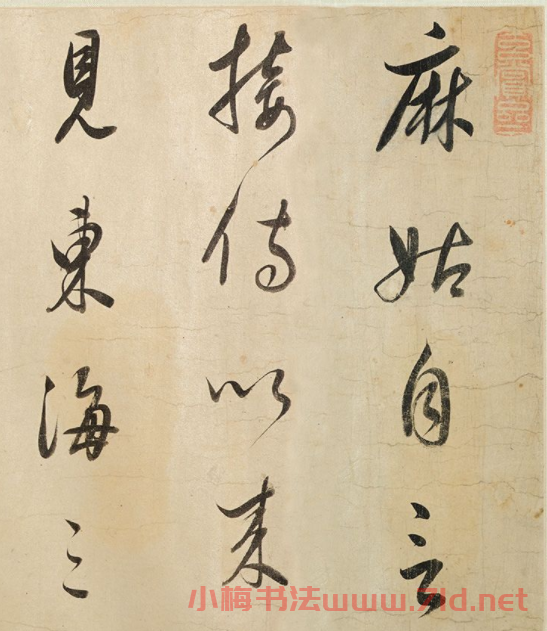 麻姑自言
接侍以来
見東海三
小梅书法www.7ld.net